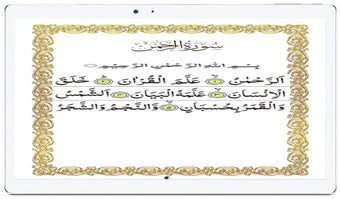 سورة الرحمن
بِسْمِ اللهِ الرَّحْمٰنِ الرَّحِيْمِ
اَلرَّحْمٰنُ ۝١ عَلَّمَ الْقُرْاٰنَ ۝٢ خَلَقَ
الْاِنْسَانَ ۝٣ عَلَّمَهُ الْبَيَانَ ۝٤ اَلشَّمْسُ
وَالْقَمَرُ بِحُسْبَانٍ ۝٥ وَّالنَّجْمُ وَالشَّجَرُ